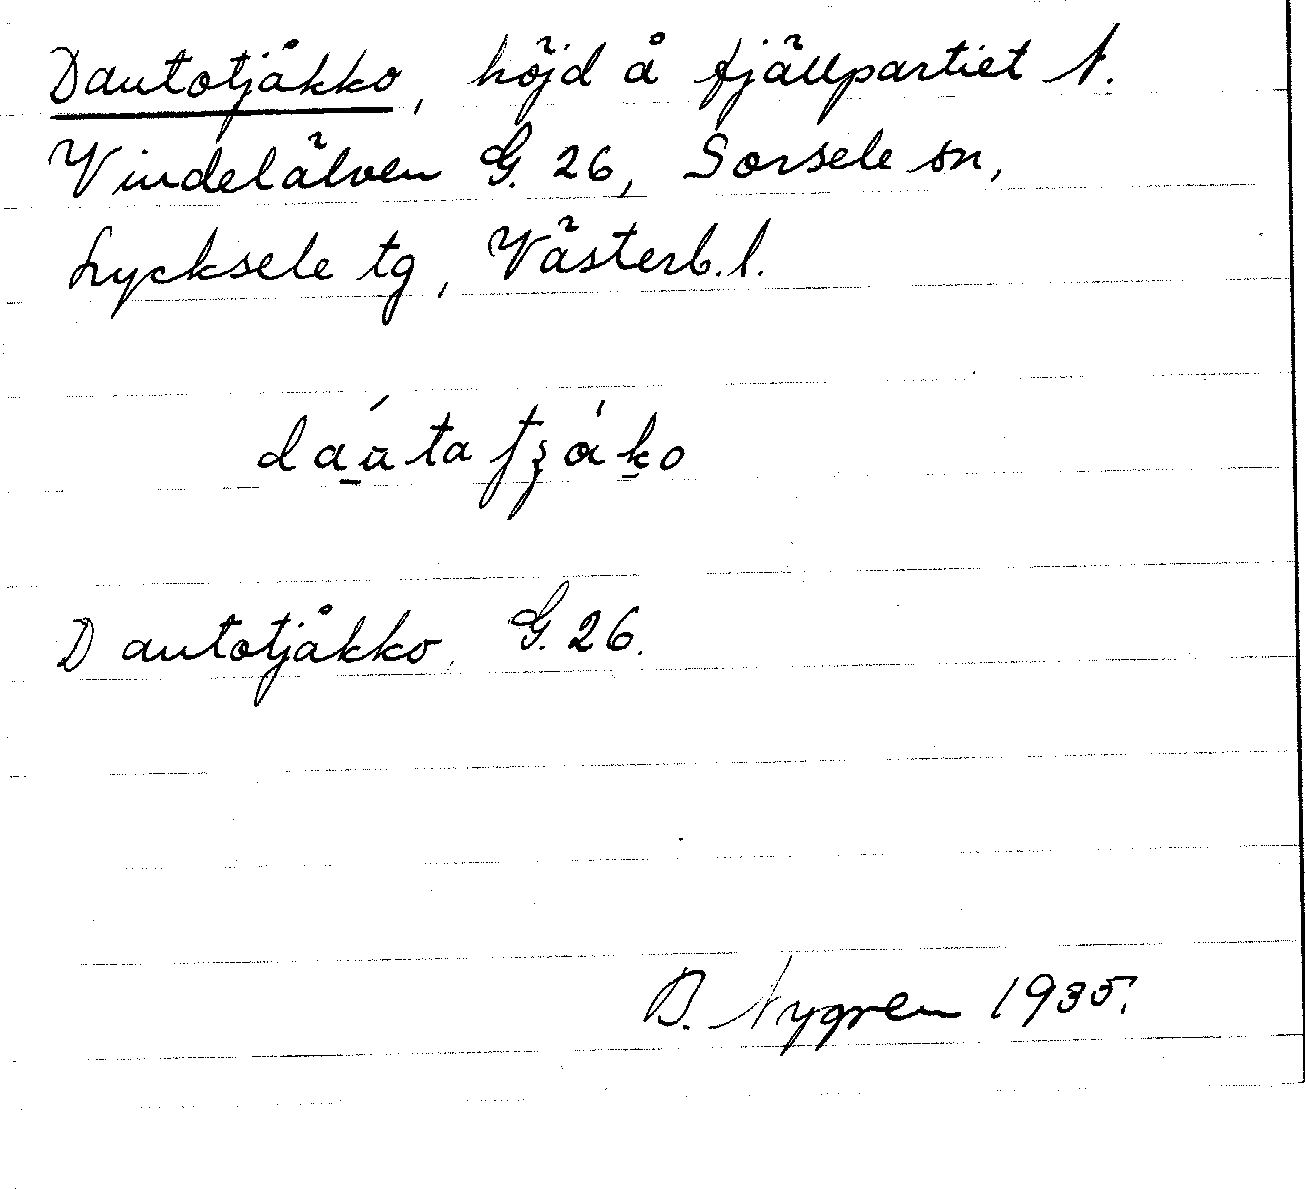 Dautotjåkko, höjd å fjällpartiet N.
Vindelälven G. 26, Sorsele sn,
Lycksele tg, Västerb. l.
Dautotjåkko. G. 26.
B. Nygren 1935.